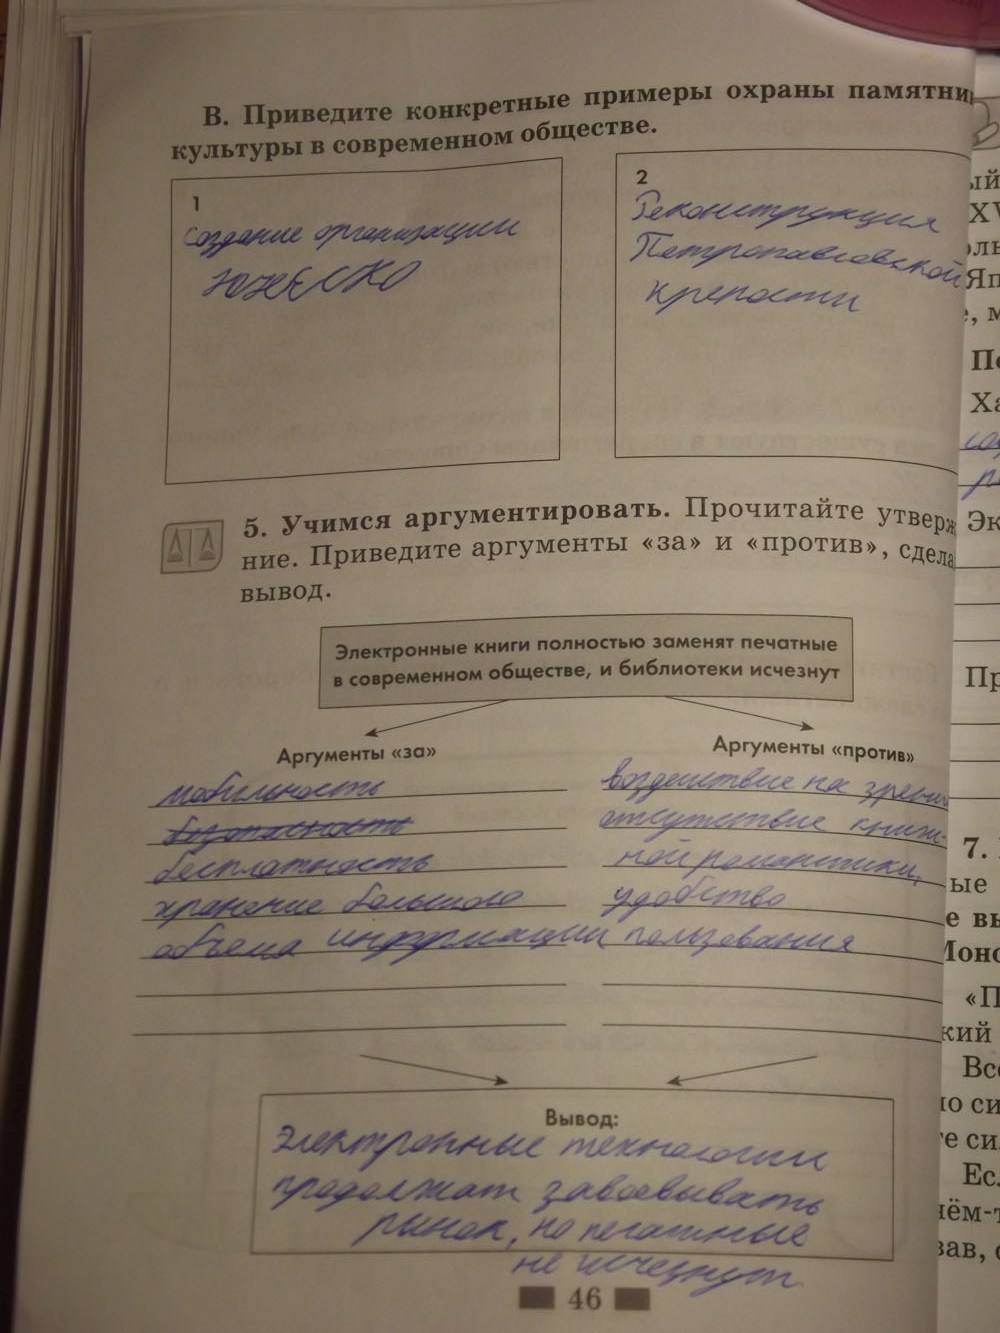 В. Приведите конкретные примеры охраны памятни
культуры в современном обществе.
1
Создание организации
ЮНЕСКО
2
Реконструкция
Петропавловской
крепости
5. Учимся аргументировать. Прочитайте утверж
ние. Приведите аргументы «за» и «против», сдела
вывод.
Электронные книги полностью заменят печатные
в современном обществе, и библиотеки исчезнут
Аргументы «за»
мобильность
безопасность
бесплатность
хранение большого
объема информации
Аргументы «против»
воздействие на зрение
отсутствие книж-
ной романтики,
удобство
пользования
Вывод:
Электронные технологии
продолжат завоевывать
рынок, но печатные
не исчезнут
46
ый
XV
оль
Яп
е, м
По
Ха
Эк
Пр
7.
ые
е вы
Моно
«П
кий
Все
но си
те си
Есл
чём-т
зав, с